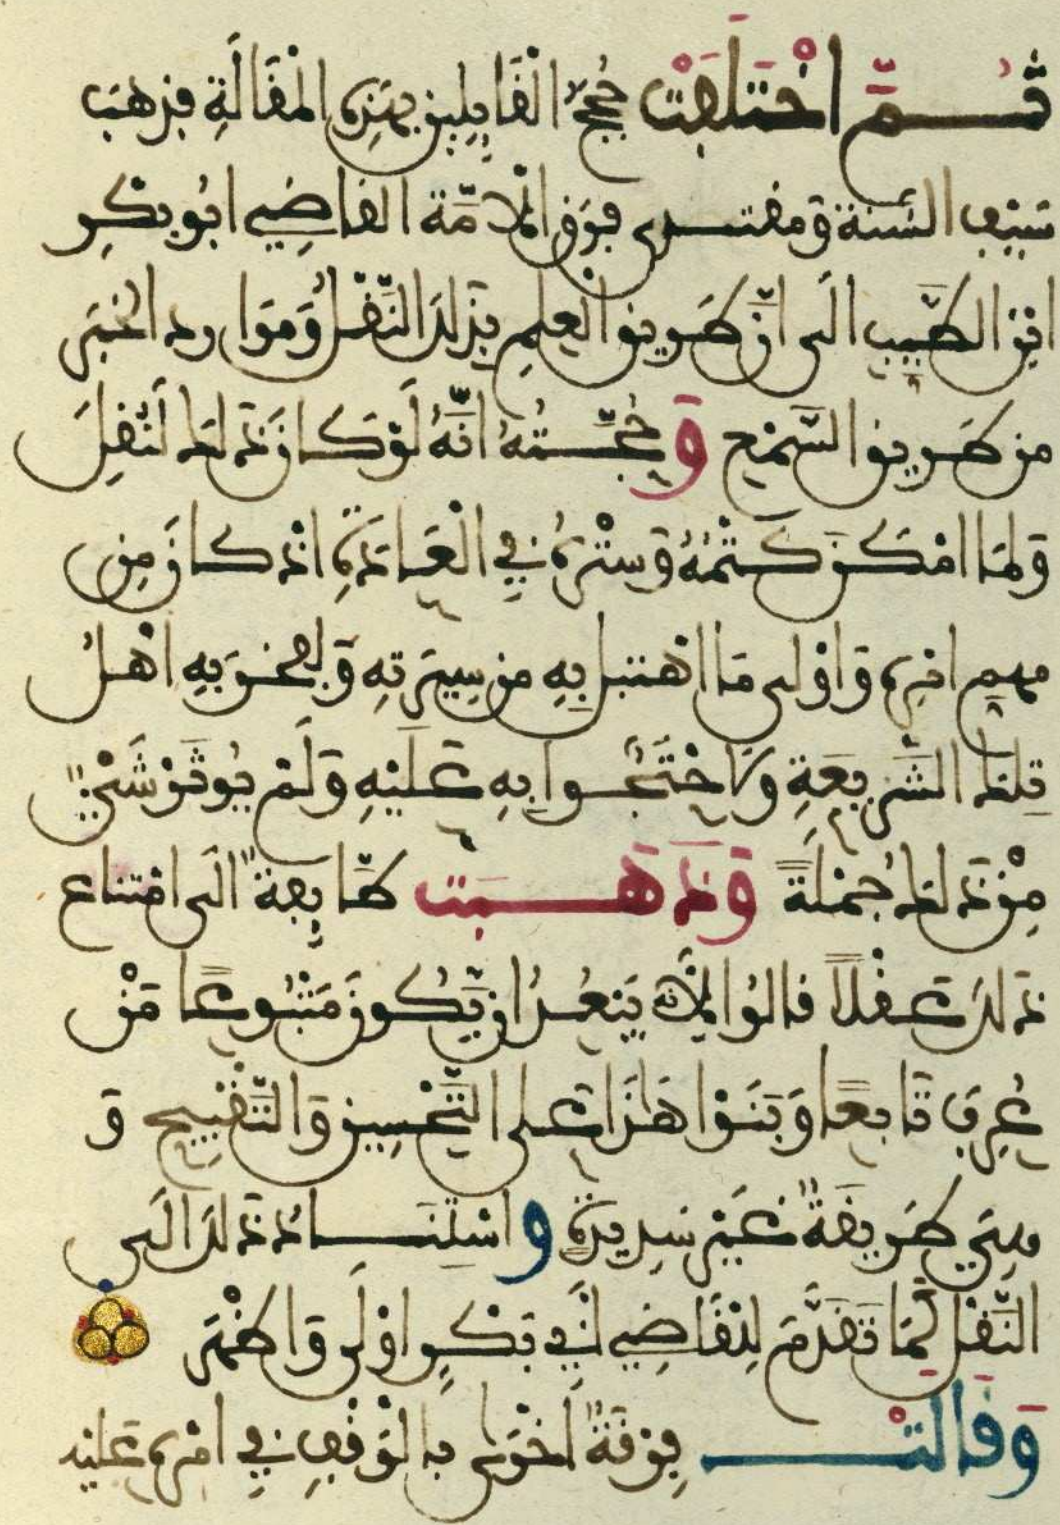 ثُمَّ اخْتَلَفَتْ حُجَجُ الْقَائِلِينَ بِهَذِهِ الْمَقَالَةِ فذهب
سَيْفُ السُّنَّةِ وَمقتدى فِرَقِ الْأُمَّةِ القاضِي ابُو بكْرِ
ابْنُ الطَّيِّبِ الَى انَّ طَرِيقَ الْعِلْمِ بِذَلِكَ النَّقْلُ وَمَوَارِدُ الْخَبَرِ
مِن طَرِيقِ السَّمْعِ وَحُجَّتُهُ انَّهُ لَوْ كَانَ ذَلِكَ لَنُقِلَ
وَلَمَا امْكَنَ كَتْمُهُ وَسَتْرُهُ فِي الْعَادَةِ اذْ كَانَ مِن
مهم امْرِهِ وَاوْلى مَا اهْتبل بِهِ مِن سِيرَتِهِ وَلفخر بِهِ اهْلُ
تِلْكَ الشَّرِيعَةِ وَلَاحْتَجُّوا بِهِ عَلَيْهِ وَلَمْ يُوثَرْ شَيْءٌ
مِنْ ذَلِكَ جُمْلَةً وَذَهَبَت طَائِفَةٌ الَى امْتناع
ذَلِكَ عَقْلًا قالُوا لِأَنَّهُ يَبْعُدُ ان يَكُونَ مَتْبُوعًا مَنْ
عُرِفَ تَابعًا وَبَنَوْا هَذَا عَلى التَّحْسِينِ وَالتَّقْبِيحِ وَ
هِيَ طَرِيقَةٌ غَيْرُ سَدِيدَةٍ وَاسْتِنَادُ ذَلِكَ الَى
النَّقْلِ كَمَا تَقَدَّمَ لِلْقَاضِي أَبِي بَكْرٍ اوْلَى وَاظْهَرَ
وَقَالَتْ فِرْقَةٌ اخْرَى بِالْوَقْفِ فِي امْرِهِ عَلَيْهِ